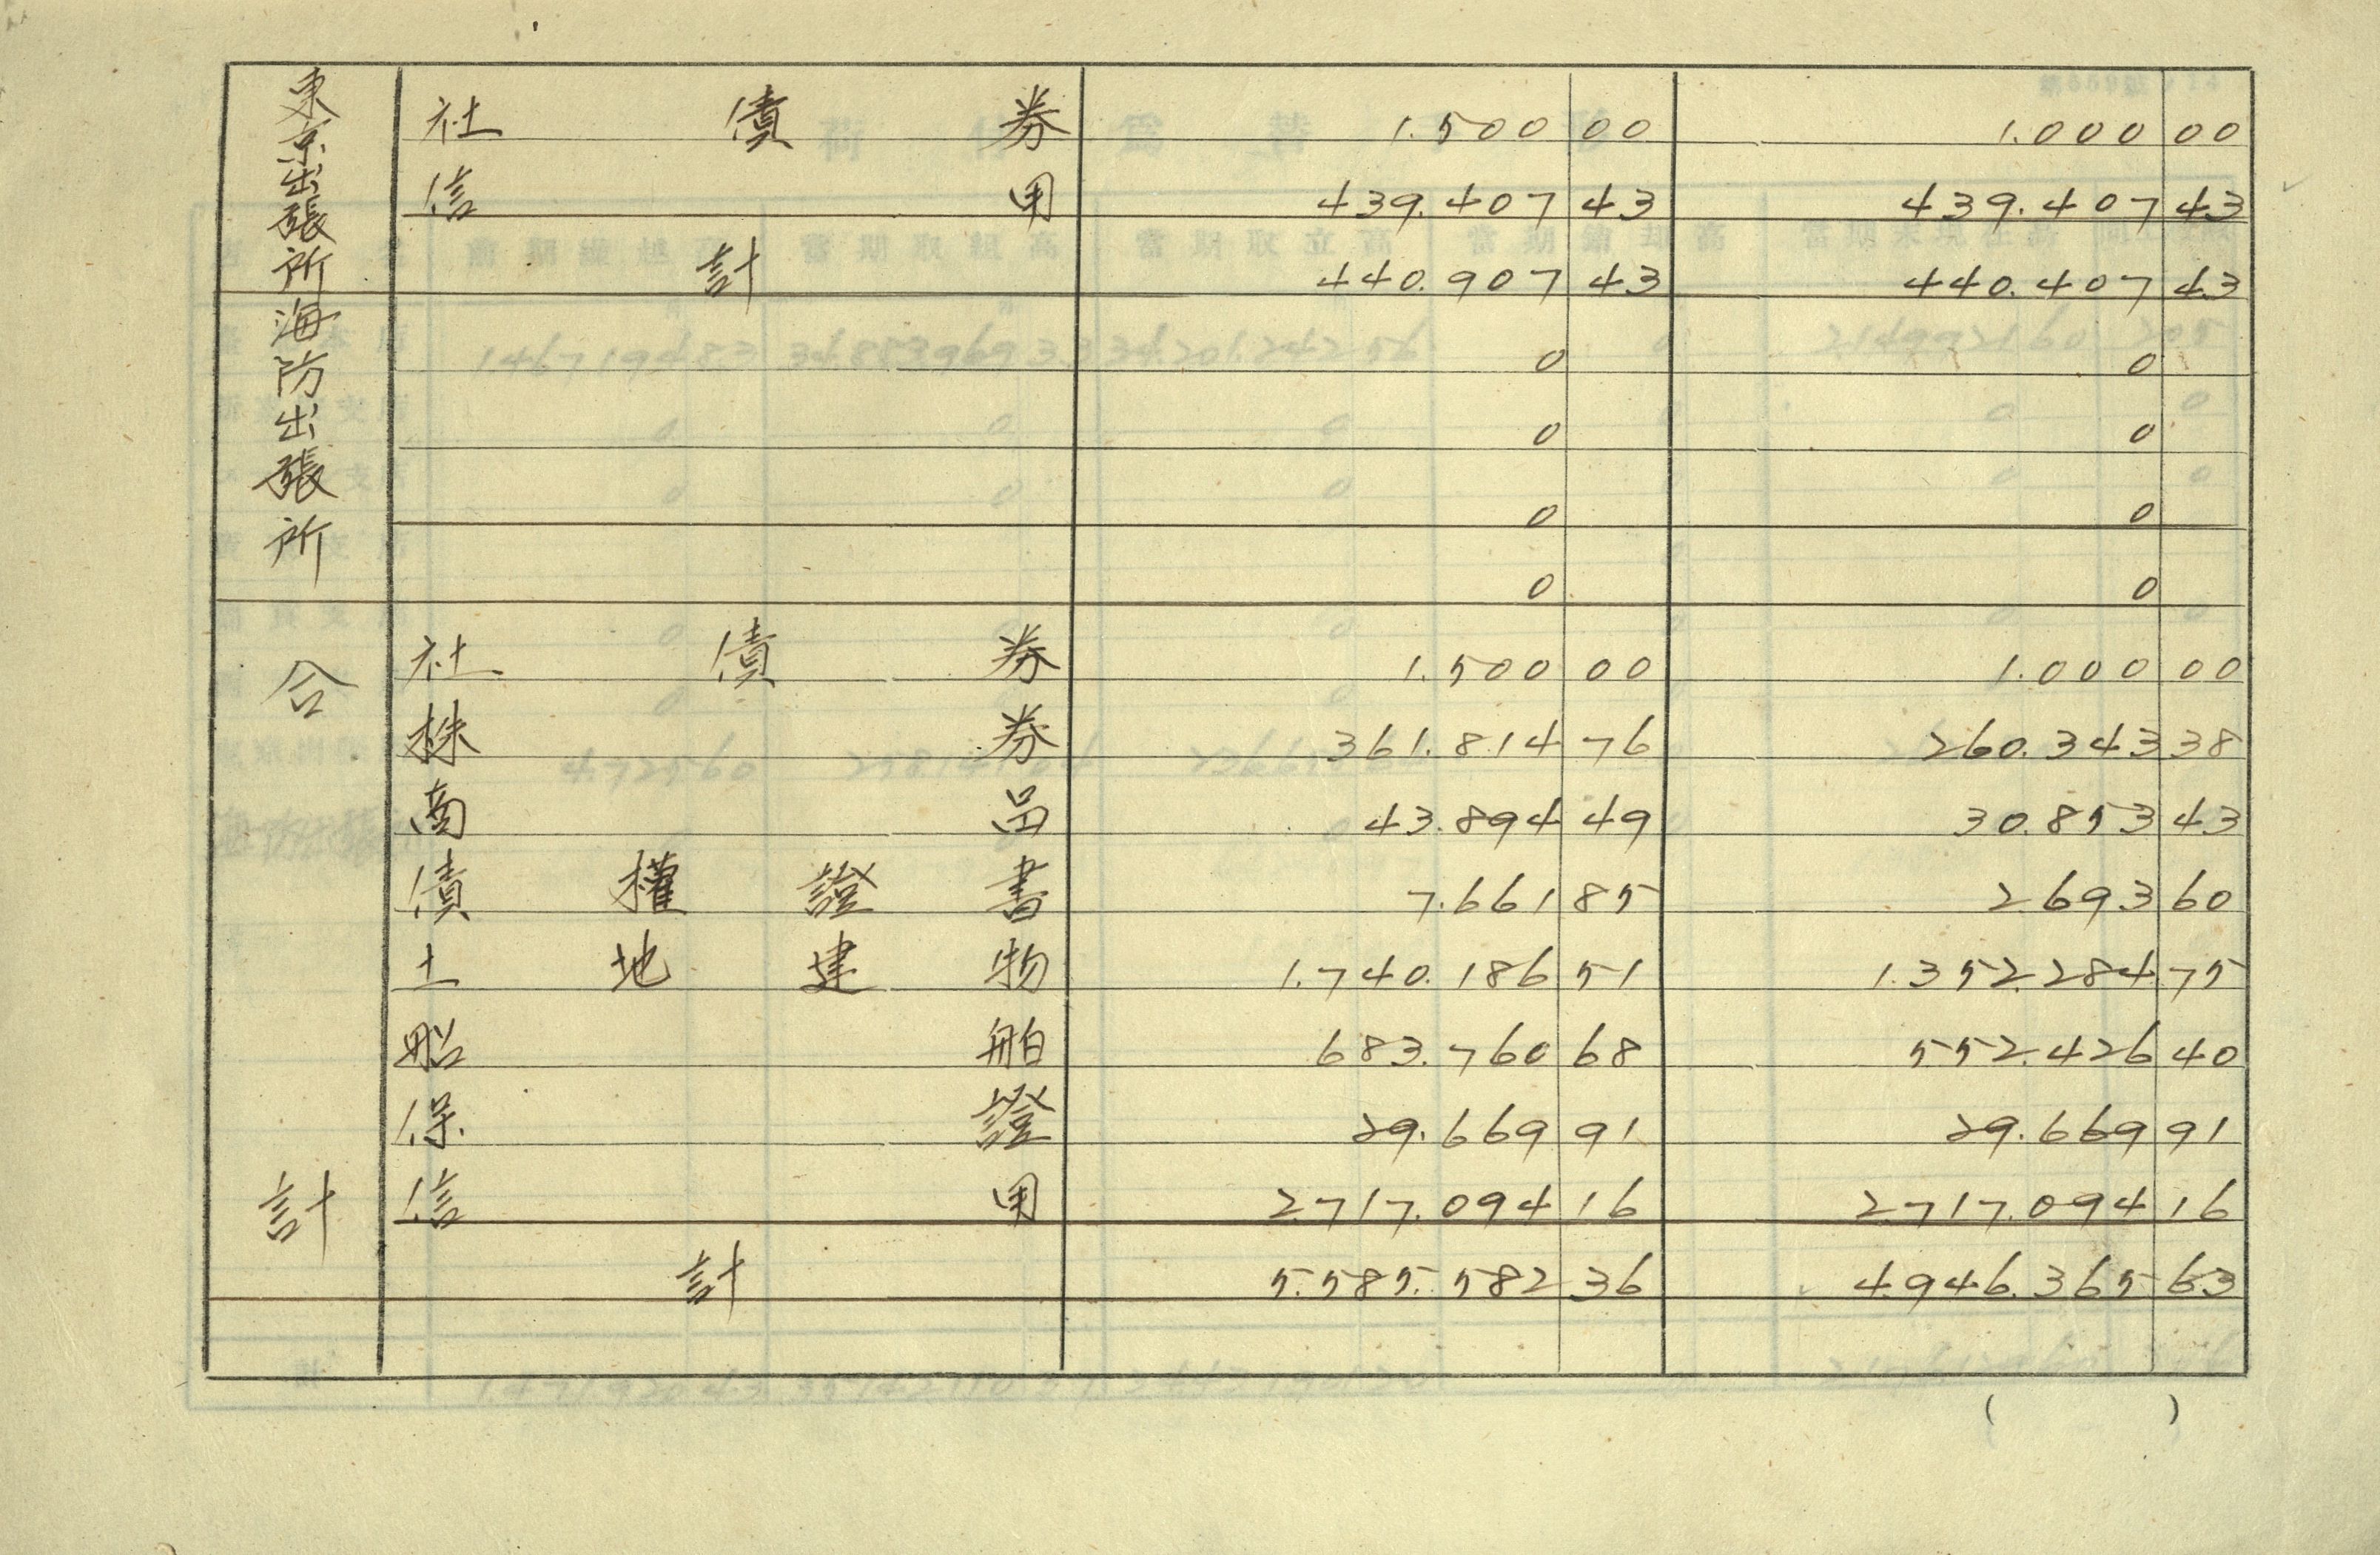 東京出張所
社債券 1.500 00 1.000 00
信用 439.407 43 439.407 43
計 440.907 43 440.407 43
海防出張所
0 0
0 0
0 0
0 0
合計
社債券 1.500 00 1.000 00
株券 361.814 76 260.343 38
商品 43.894 49 30.853 43
債權證書 7.661 85 2.693 60
土地建物 1.740.186 51 1.352.284 75
船舶 683.760 68 552.426 40
保證 29.669 91 29.669 91
信用 2.717.094 16 2.717.094 16
計 5.585.582 36 4.946.365 63
( )